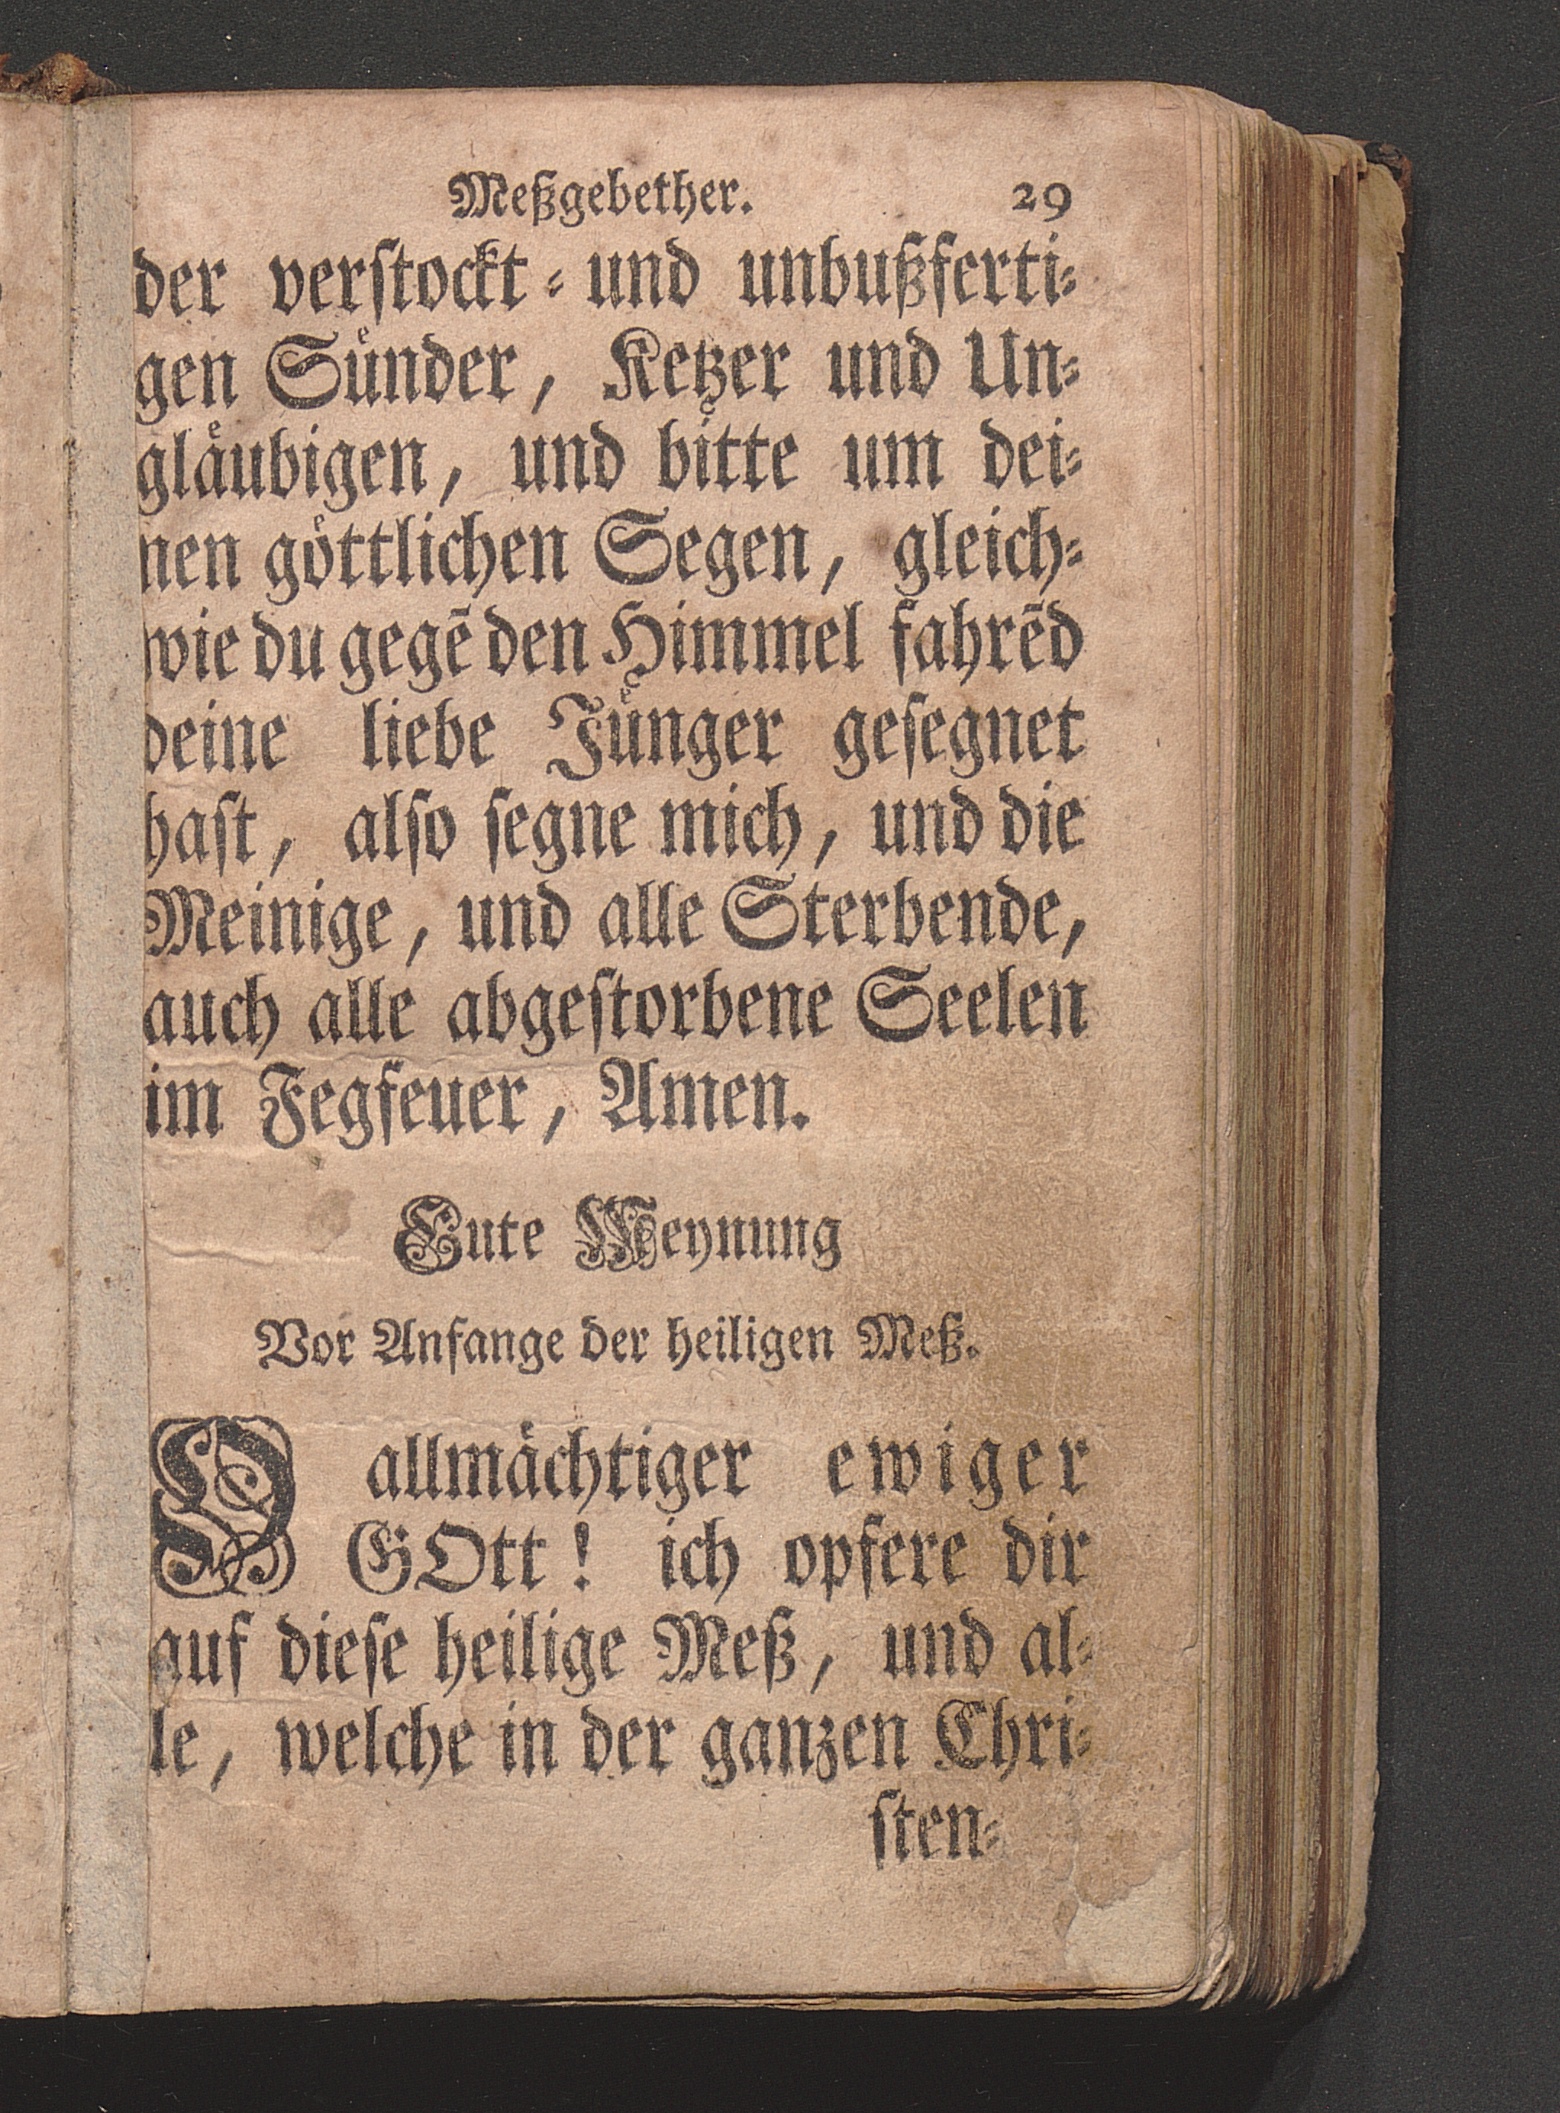 Meßgebether. 29
der verſtockt⸗ und unbußferti⸗
gen Sünder, Ketzer und Un⸗
gläubigen, und bitte um dei⸗
nen göttlichen Segen, gleich⸗
wie du gegē den Himmel fahrēd
deine liebe Jünger geſegnet
haſt, alſo ſegne mich, und die
Meinige, und alle Sterbende,
auch alle abgeſtorbene Seelen
im Fegfeuer, Amen.
Gute Meynung
Vor Anfange der heiligen Meß.
O allmächtiger ewiger
GOtt! ich opfere dir
auf dieſe heilige Meß, und al⸗
le, welche in der ganzen Chri⸗
ſten⸗